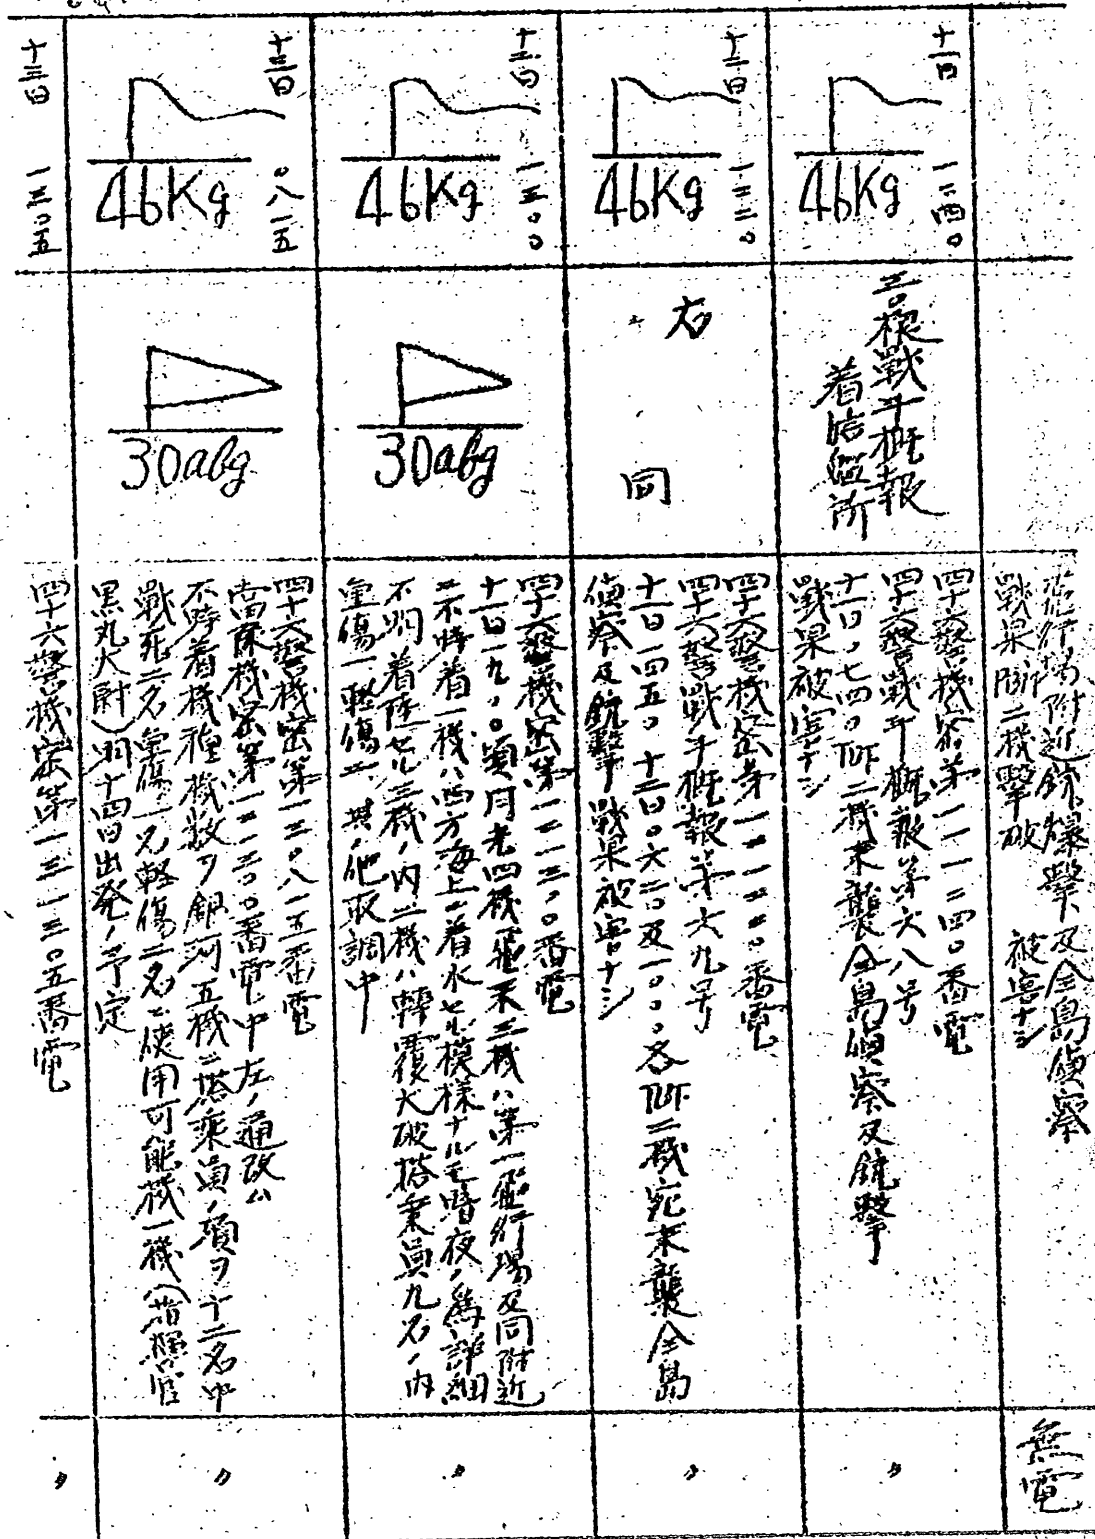 飛行場附近銃爆撃及全島偵察
戦果 二機撃破 被害ナシ
無電
十一日 一一四〇
46Kg
三〇根戦斗概報
着信艦所
四十六警機密第一一一二四〇番電
四十六警戦斗概報第六八号
十一日〇七四〇 二機来襲全島偵察及銃撃
戦果被害ナシ
〃
十二日 一二二〇
46Kg
右 同
四十六警機密第一二一二二〇番電
四十六警戦斗概報第六九号
十一日一四五〇、十二日〇六二〇及一〇〇〇各 二機宛来襲全島
偵察及銃撃 戦果被害ナシ
〃
十二日 一三〇〇
46Kg
30abg
四十六警機密第一二一三〇〇番電
十一日一九〇〇頃月光四機飛来三機ハ第一飛行場及同附近
ニ不時着一機ハ西方海上ニ着水セル模様ナルモ暗夜ノ為詳細
不明 着陸セル三機ノ内二機ハ転覆大破搭乗員九名ノ内
重傷一軽傷二、其ノ他取調中
〃
十三日 〇八一五
46Kg
30abg
四十六警機密第一三〇八一五番電
当隊機密第一二一三〇〇番電中左ノ通改ム
不時着機種機数ヲ銀河五機ニ搭乗員ノ項ヲ十二名中
戦死二名重傷一名軽傷二名ニ使用可能機一機(指揮官
黒丸大尉)明十四日出発ノ予定
〃
十三日 一三〇五
四十六警機密第一三一三〇五番電
〃